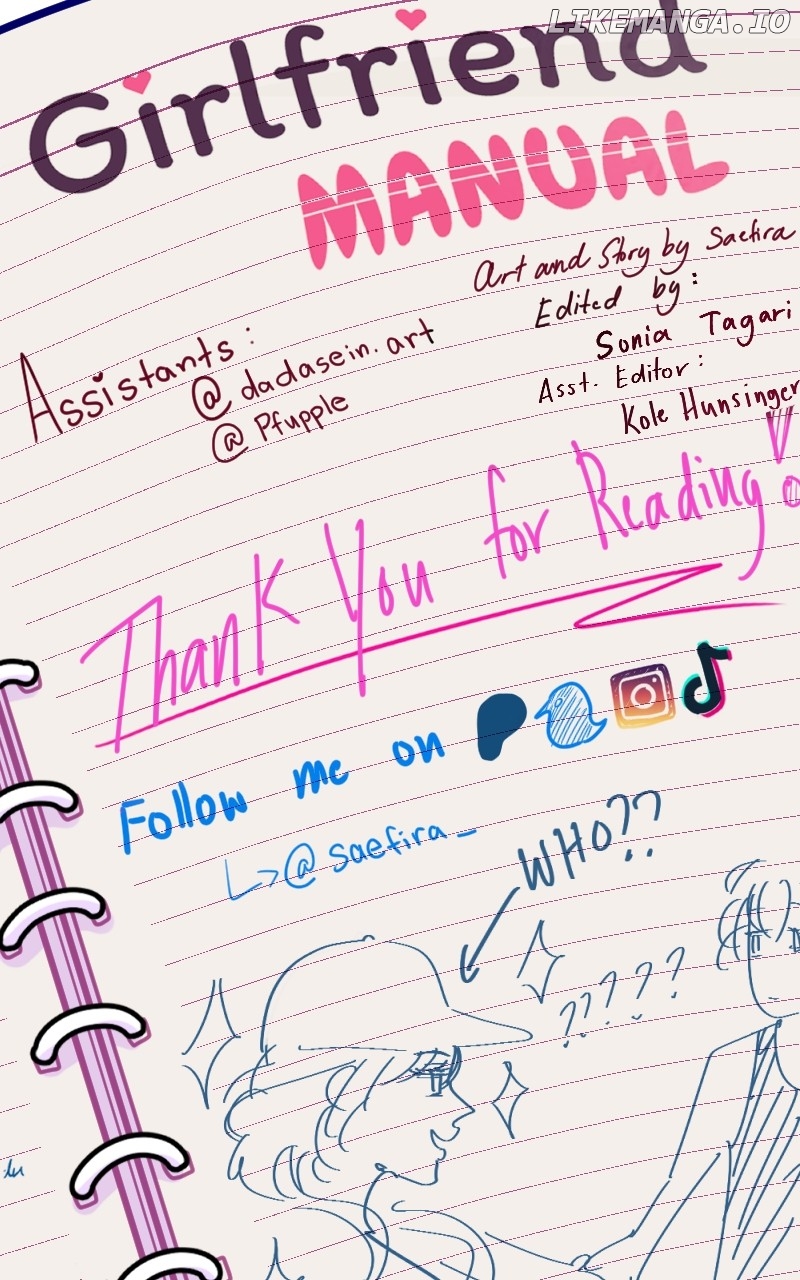 LIKEMANGA.IO
Girlfriend
MANUAL
Art and Story by Saefira
Edited by:
Sonia Tagari
Asst. Editor:
Kole Hunsinger
Assistants:
@dadasein.art
@Pfupple
Thank You for Reading!
Follow me on
↳@saefira_
WHO??
?????